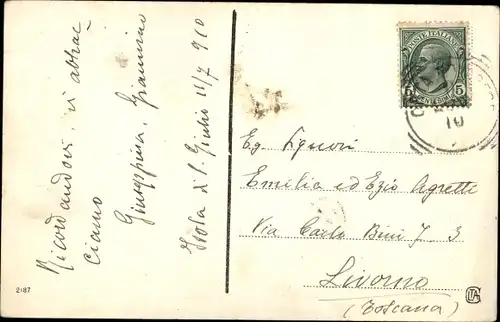 Ricordandovi, vi abbrac
ciamo
Giuseppina, Giannino
Isola di S. Giulio 11/7 910
POSTE ITALIANE
5 5
10
Eg. Signori
Emilia ed Ezio Agretti
Via Carlo Bini N. 3
Livorno
(Toscana)
2187